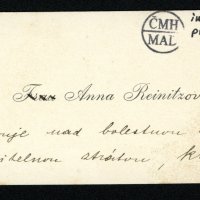 ČMH
MAL
Frau Anna Reinitzov
uje nad bolestnou
itelnou ztrátou, k